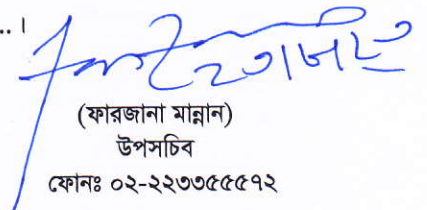 ..।
(ফারজানা মান্নান)
উপসচিব
ফোনঃ ০২-২২৩৩৫৫৫৭২